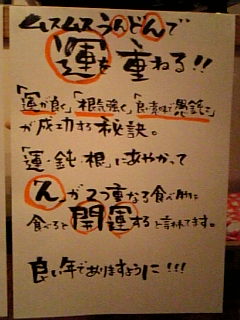 ムスムスうんどんで
運を重ねる!!
「運が良く」「根気強く」「良い素材で愚鈍に」
が成功する秘訣。
「運・鈍・根」にあやかって
「ん」が2つ重なる食べ物に
食べると開運すると言われてます。
良い年でありますように!!!